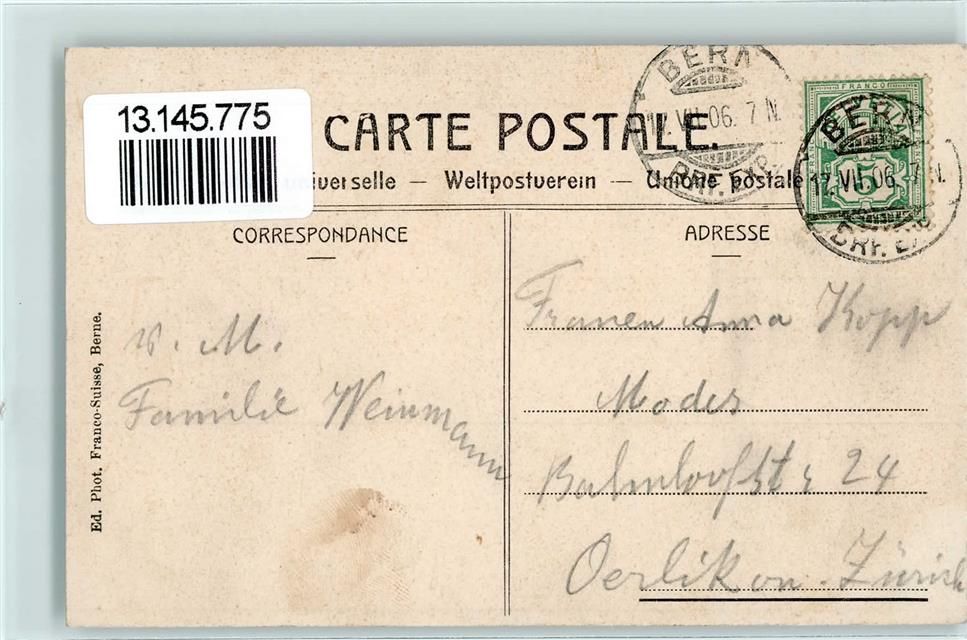 13.145.775
CARTE POSTALE.
universelle — Weltpostverein — Unione postale
BERN
12.VII.06. 7 N.
BRF. EXP.
FRANCO
BERN
12.VII.06. 7 N.
BRF. EXP.
CORRESPONDANCE
ADRESSE
v. M.
Familie Weinmann
Frauen Anna Kopp
Modes
Bahnhofst. 24
Oerlikon-Zürich
Ed. Phot. Franco-Suisse, Berne.